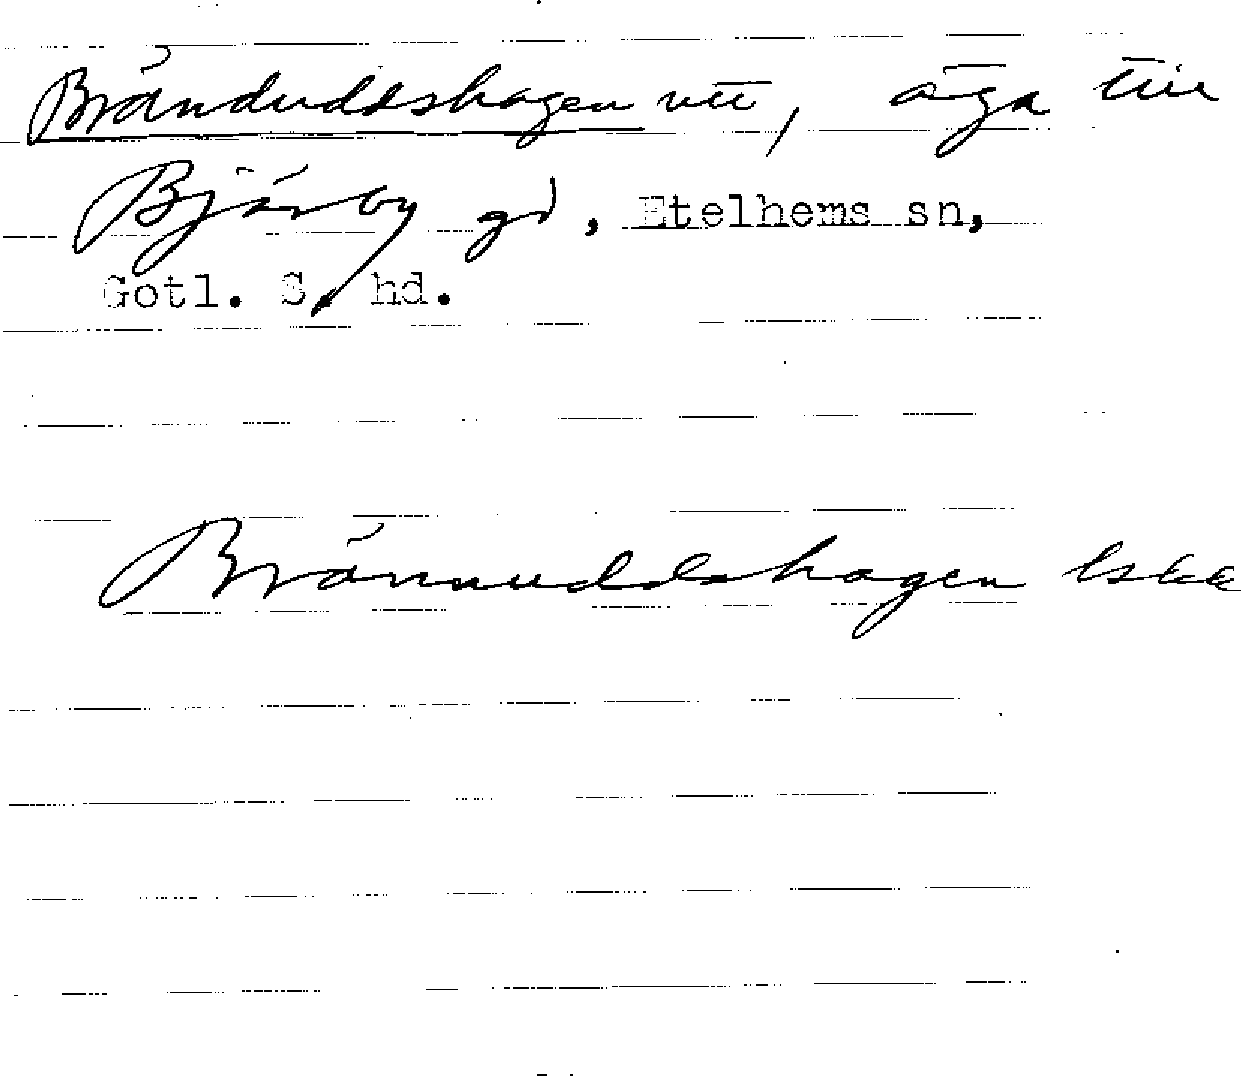 Bränduddshagen utt, äga till
Bjärby gd, Etelhems sn,
Gotl. S. hd.
Brännuddshagen